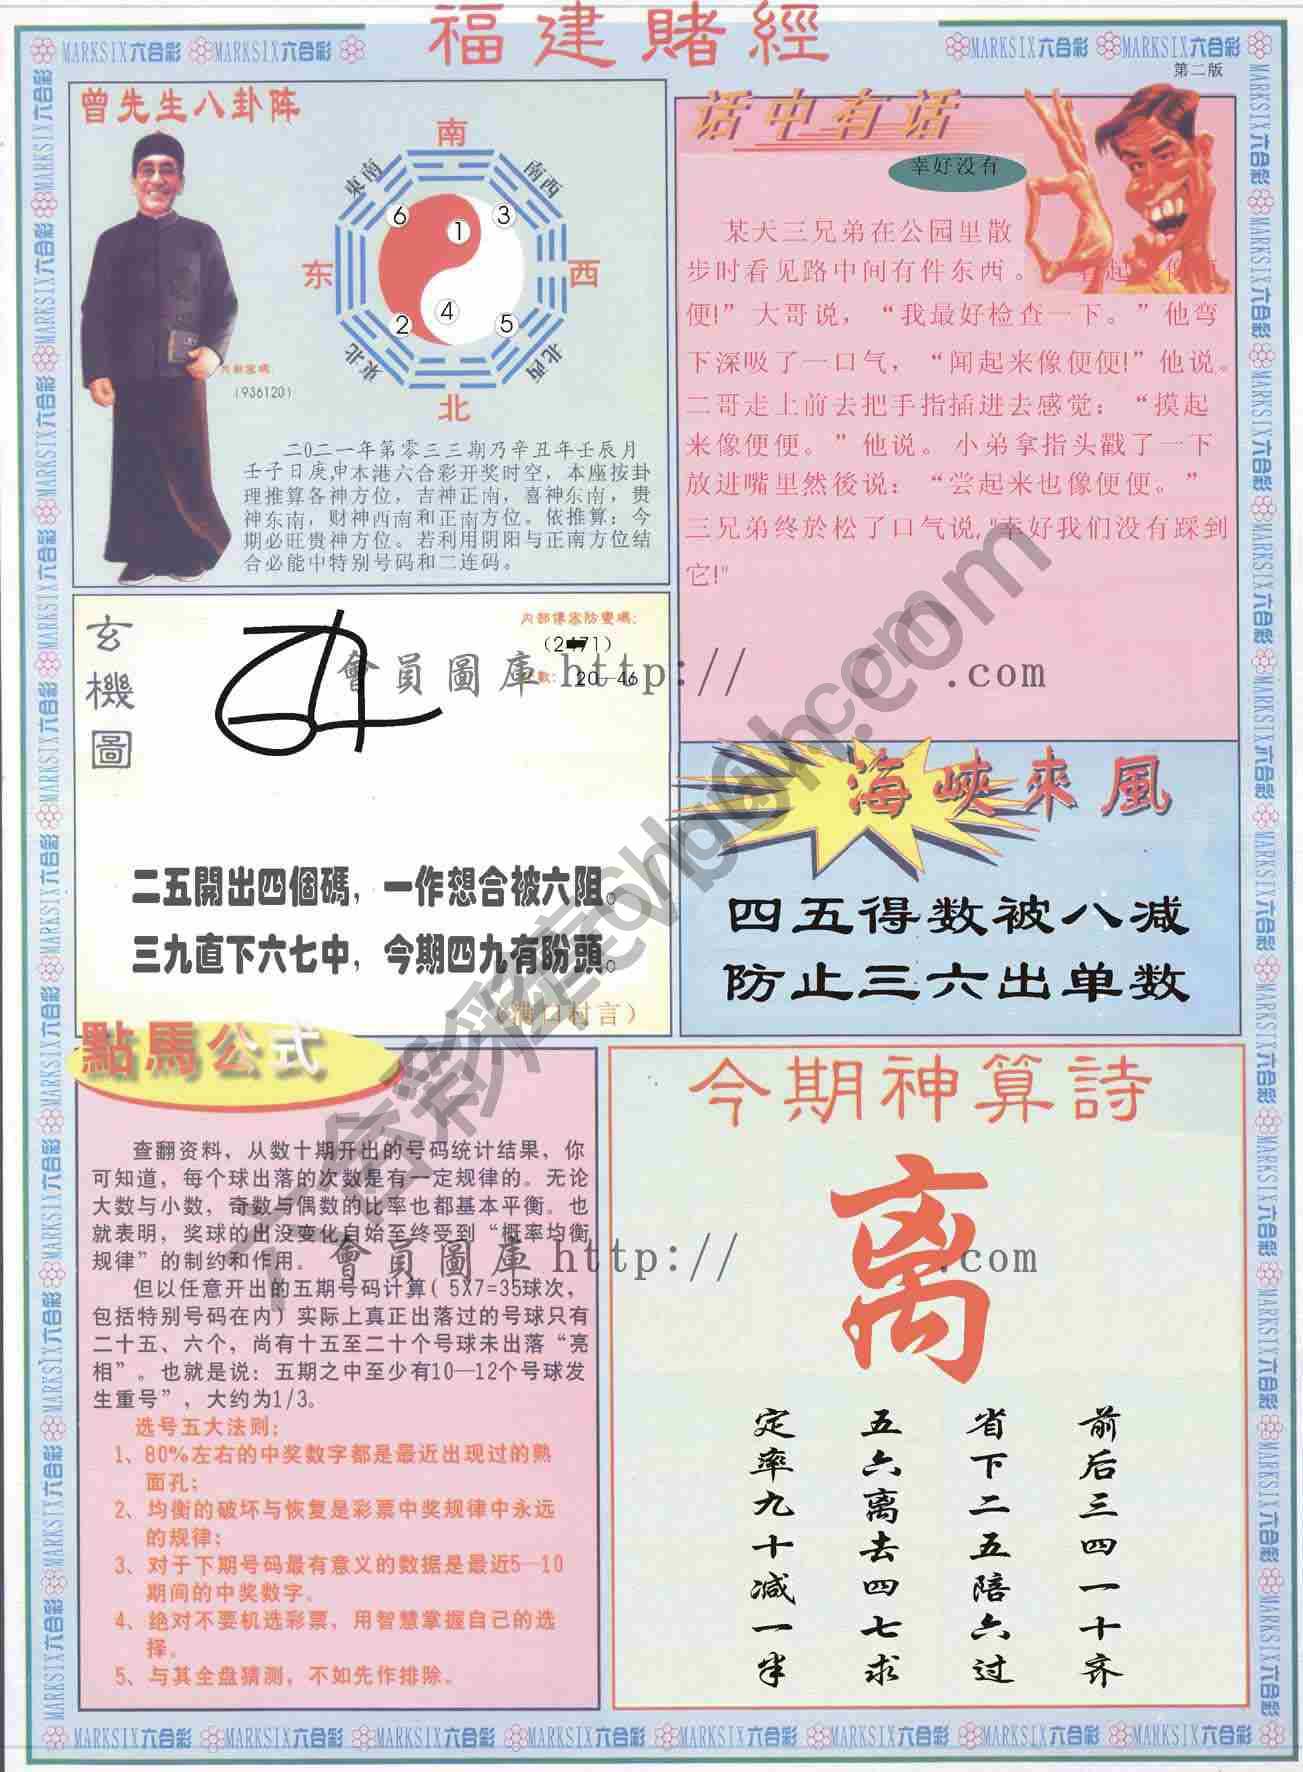 福建賭經
MARKSIX六合彩 MARKSIX六合彩
MARKSIX六合彩 MARKSIX六合彩
第二版
曾先生八卦阵
南
東南
南西
东
西
東北
北西
北
6
1
3
4
2
5
(936120)
二0二一年第零三三期乃辛丑年壬辰月
壬子日庚申本港六合彩开奖时空，本座按卦
理推算各神方位，吉神正南，喜神东南，贵
神东南，财神西南和正南方位。依推算：今
期必旺贵神方位。若利用阴阳与正南方位结
合必能中特别号码和二连码。
话中有话
幸好没有
某天三兄弟在公园里散
步时看见路中间有件东西。
便!”大哥说，“我最好检查一下。”他弯
下深吸了一口气，“闻起来像便便!”他说。
二哥走上前去把手指插进去感觉：“摸起
来像便便。”他说。小弟拿指头戳了一下
放进嘴里然後说：“尝起来也像便便。”
三兄弟终於松了口气说,"幸好我们没有踩到
它!"
玄機圖
20—46
會員圖庫 http:// .com
二五開出四個碼，一作想合被六阻。
三九直下六七中，今期四九有盼頭。
(满口村言)
海峡来风
四五得数被八减
防止三六出单数
點馬公式
查翻资料，从数十期开出的号码统计结果，你
可知道，每个球出落的次数是有一定规律的。无论
大数与小数，奇数与偶数的比率也都基本平衡。也
就表明，奖球的出没变化自始至终受到“概率均衡
规律”的制约和作用。
但以任意开出的五期号码计算( 5X7=35球次，
包括特别号码在内）实际上真正出落过的号球只有
二十五、六个，尚有十五至二十个号球未出落“亮
相”。也就是说：五期之中至少有10—12个号球发
生重号”，大约为1/3。
选号五大法则：
1、80%左右的中奖数字都是最近出现过的熟
面孔；
2、均衡的破坏与恢复是彩票中奖规律中永远
的规律；
3、对于下期号码最有意义的数据是最近5—10
期间的中奖数字。
4、绝对不要机选彩票，用智慧掌握自己的选
择。
5、与其全盘猜测，不如先作排除。
會員圖庫 http:// .com
今期神算詩
离
前后三四一十齐
省下二五陪六过
五六离去四七求
定率九十减一半
MARKSIX六合彩 MARKSIX六合彩 MARKSIX六合彩 MARKSIX六合彩 MARKSIX六合彩 MARKSIX六合彩 MARKSIX六合彩 MARKSIX六合彩